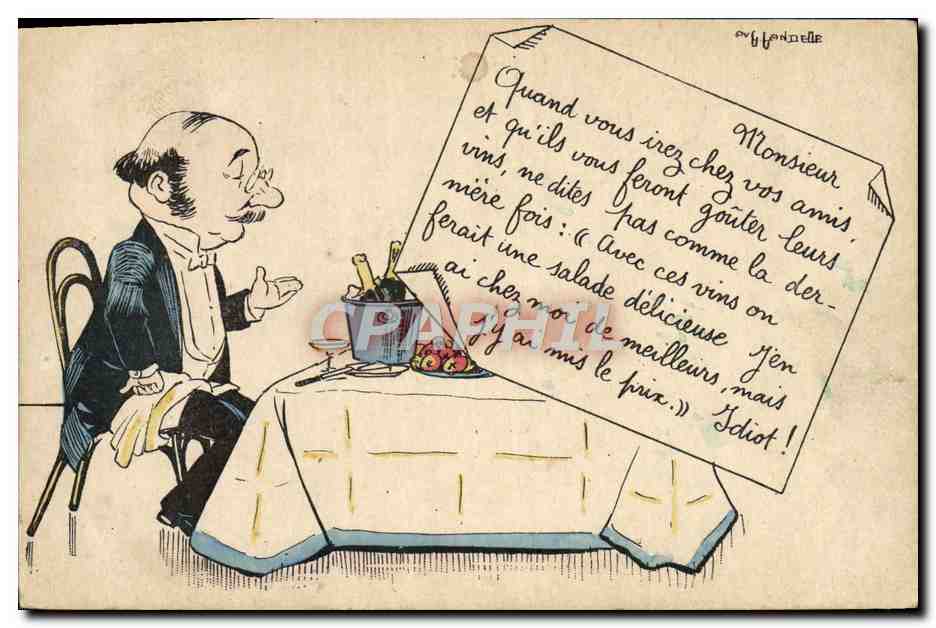 Monsieur
Quand vous irez chez vos amis,
et qu'ils vous feront goûter leurs
vins, ne dites pas comme la der-
nière fois: « Avec ces vins on
ferait une salade délicieuse J'en
ai chez moi de meilleurs, mais
j'y ai mis le prix.» Idiot!
CPAPHIL